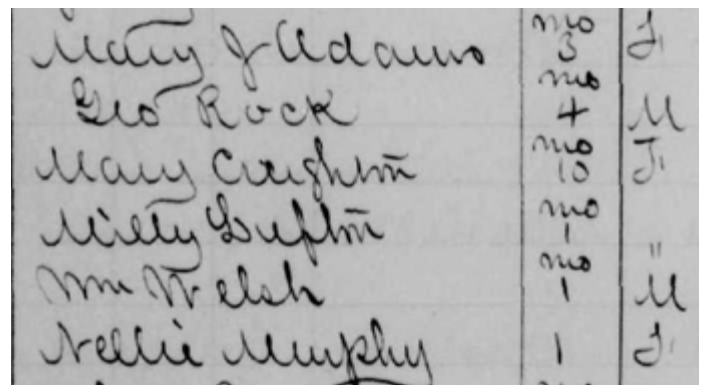 Mary J Adams mo 3 F
Geo Rock mo 4 M
Mary Creighton mo 10 F
Milly mo 1 "
Wm Welsh mo 1 M
Nellie Murphy 1 F